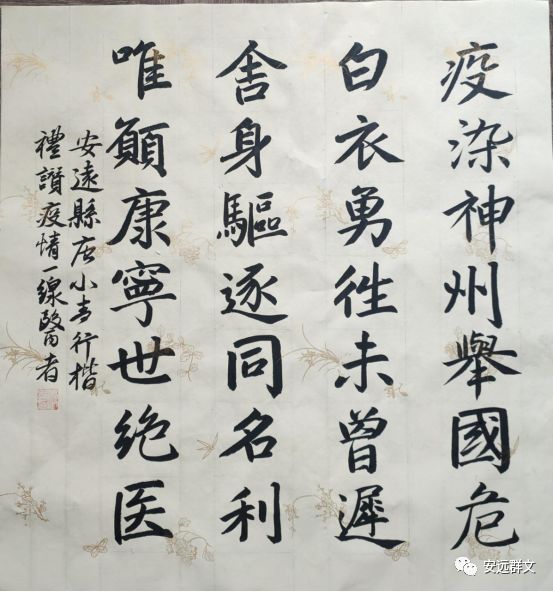 疫染神州舉國危
白衣勇徃未曾遲
舍身驅逐同名利
唯願康寧世绝医
安遠縣小青行楷
禮讃疫情一線醫者
安远群文